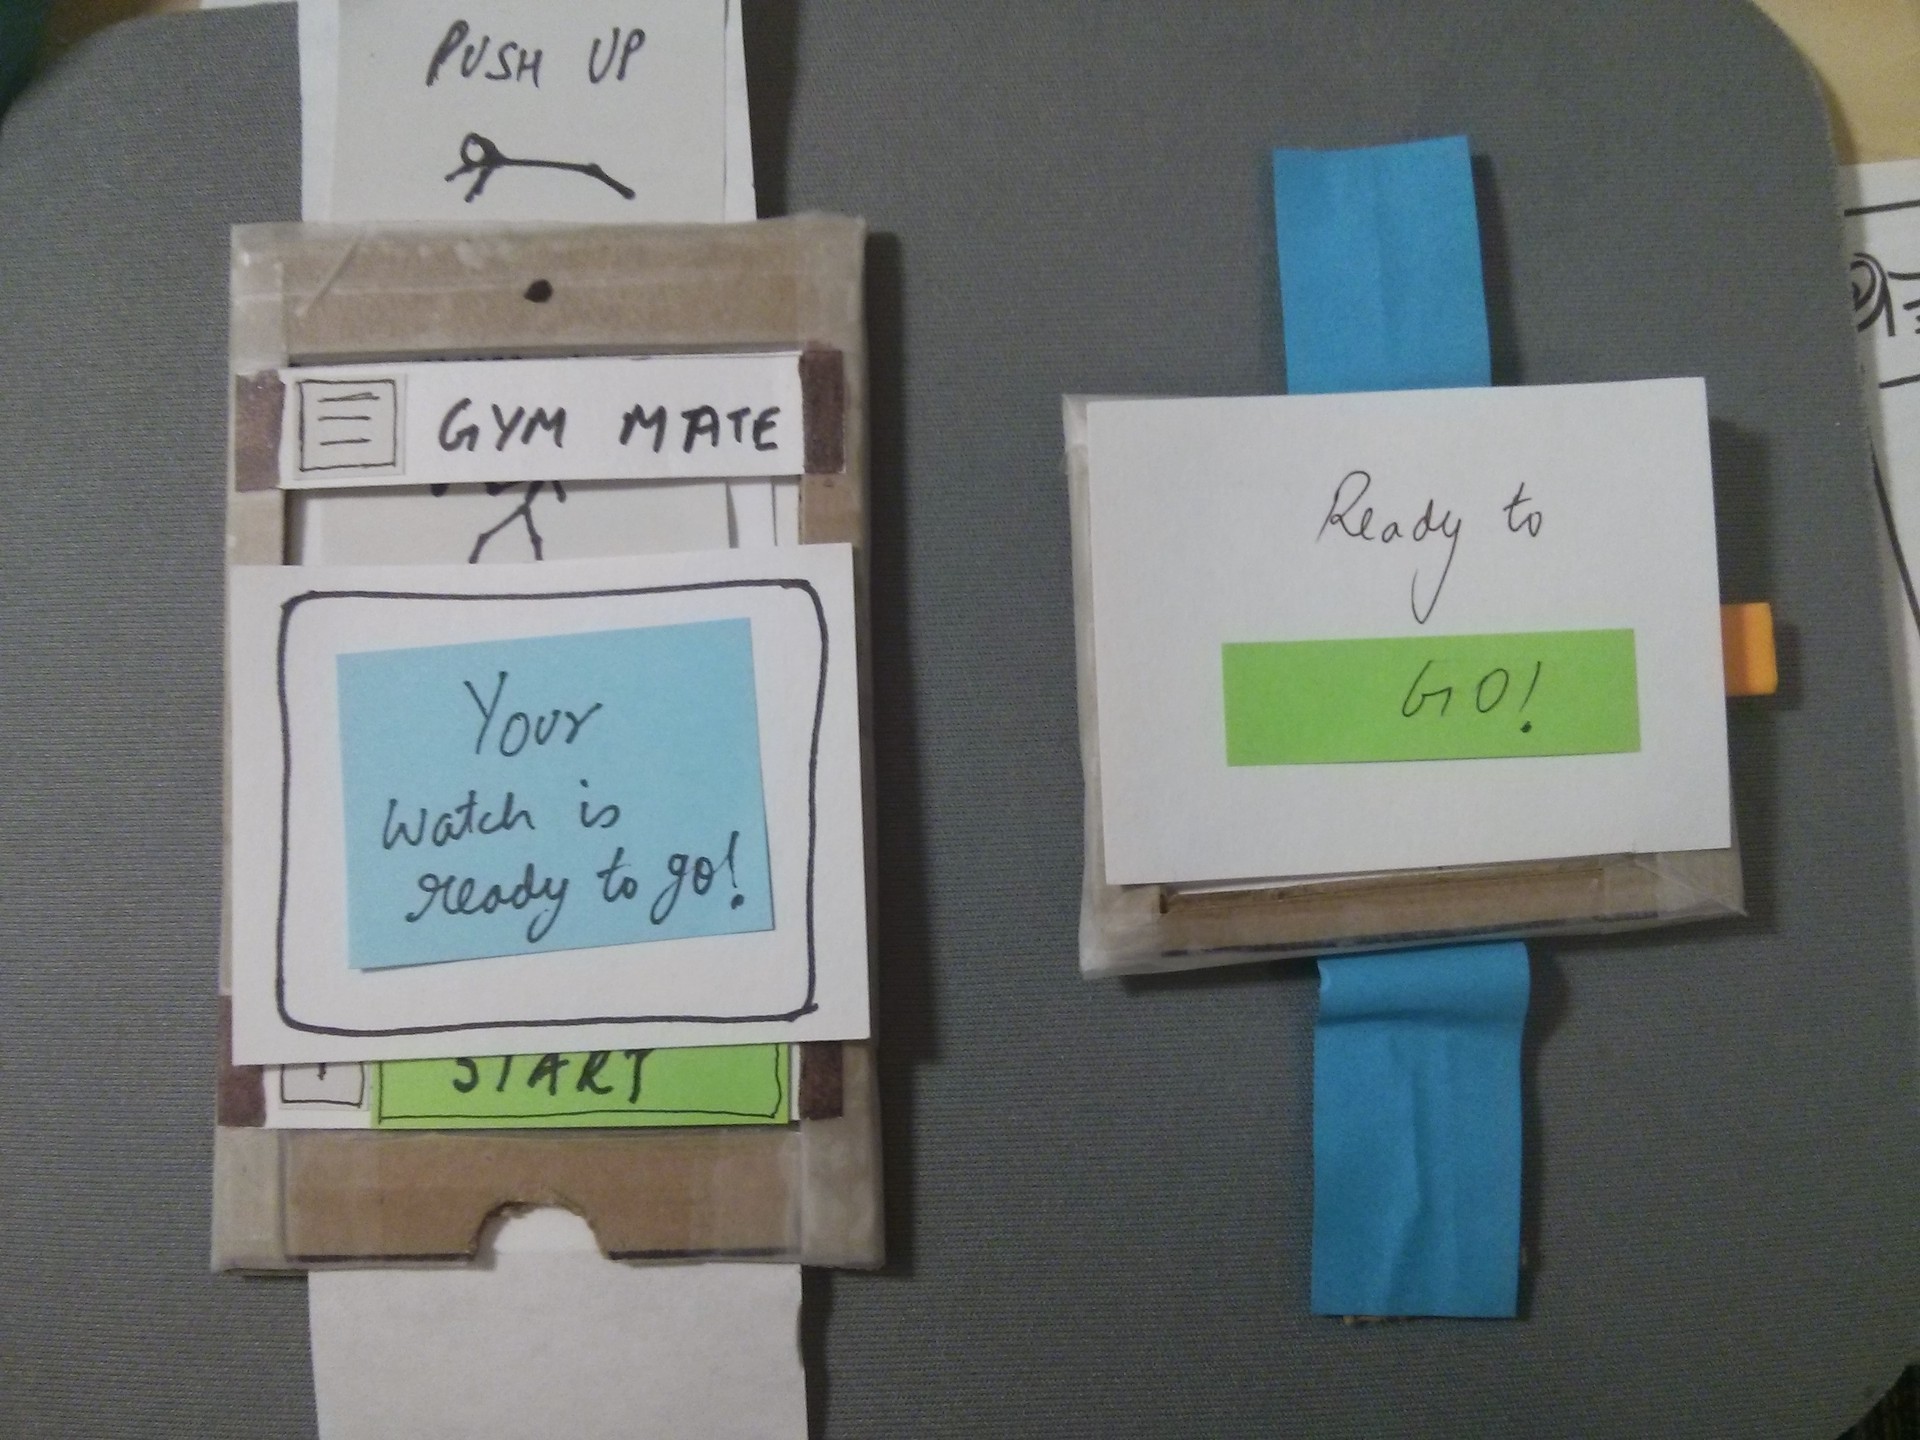 PUSH UP
GYM MATE
Your
Watch is
ready to go!
START
Ready to
GO!